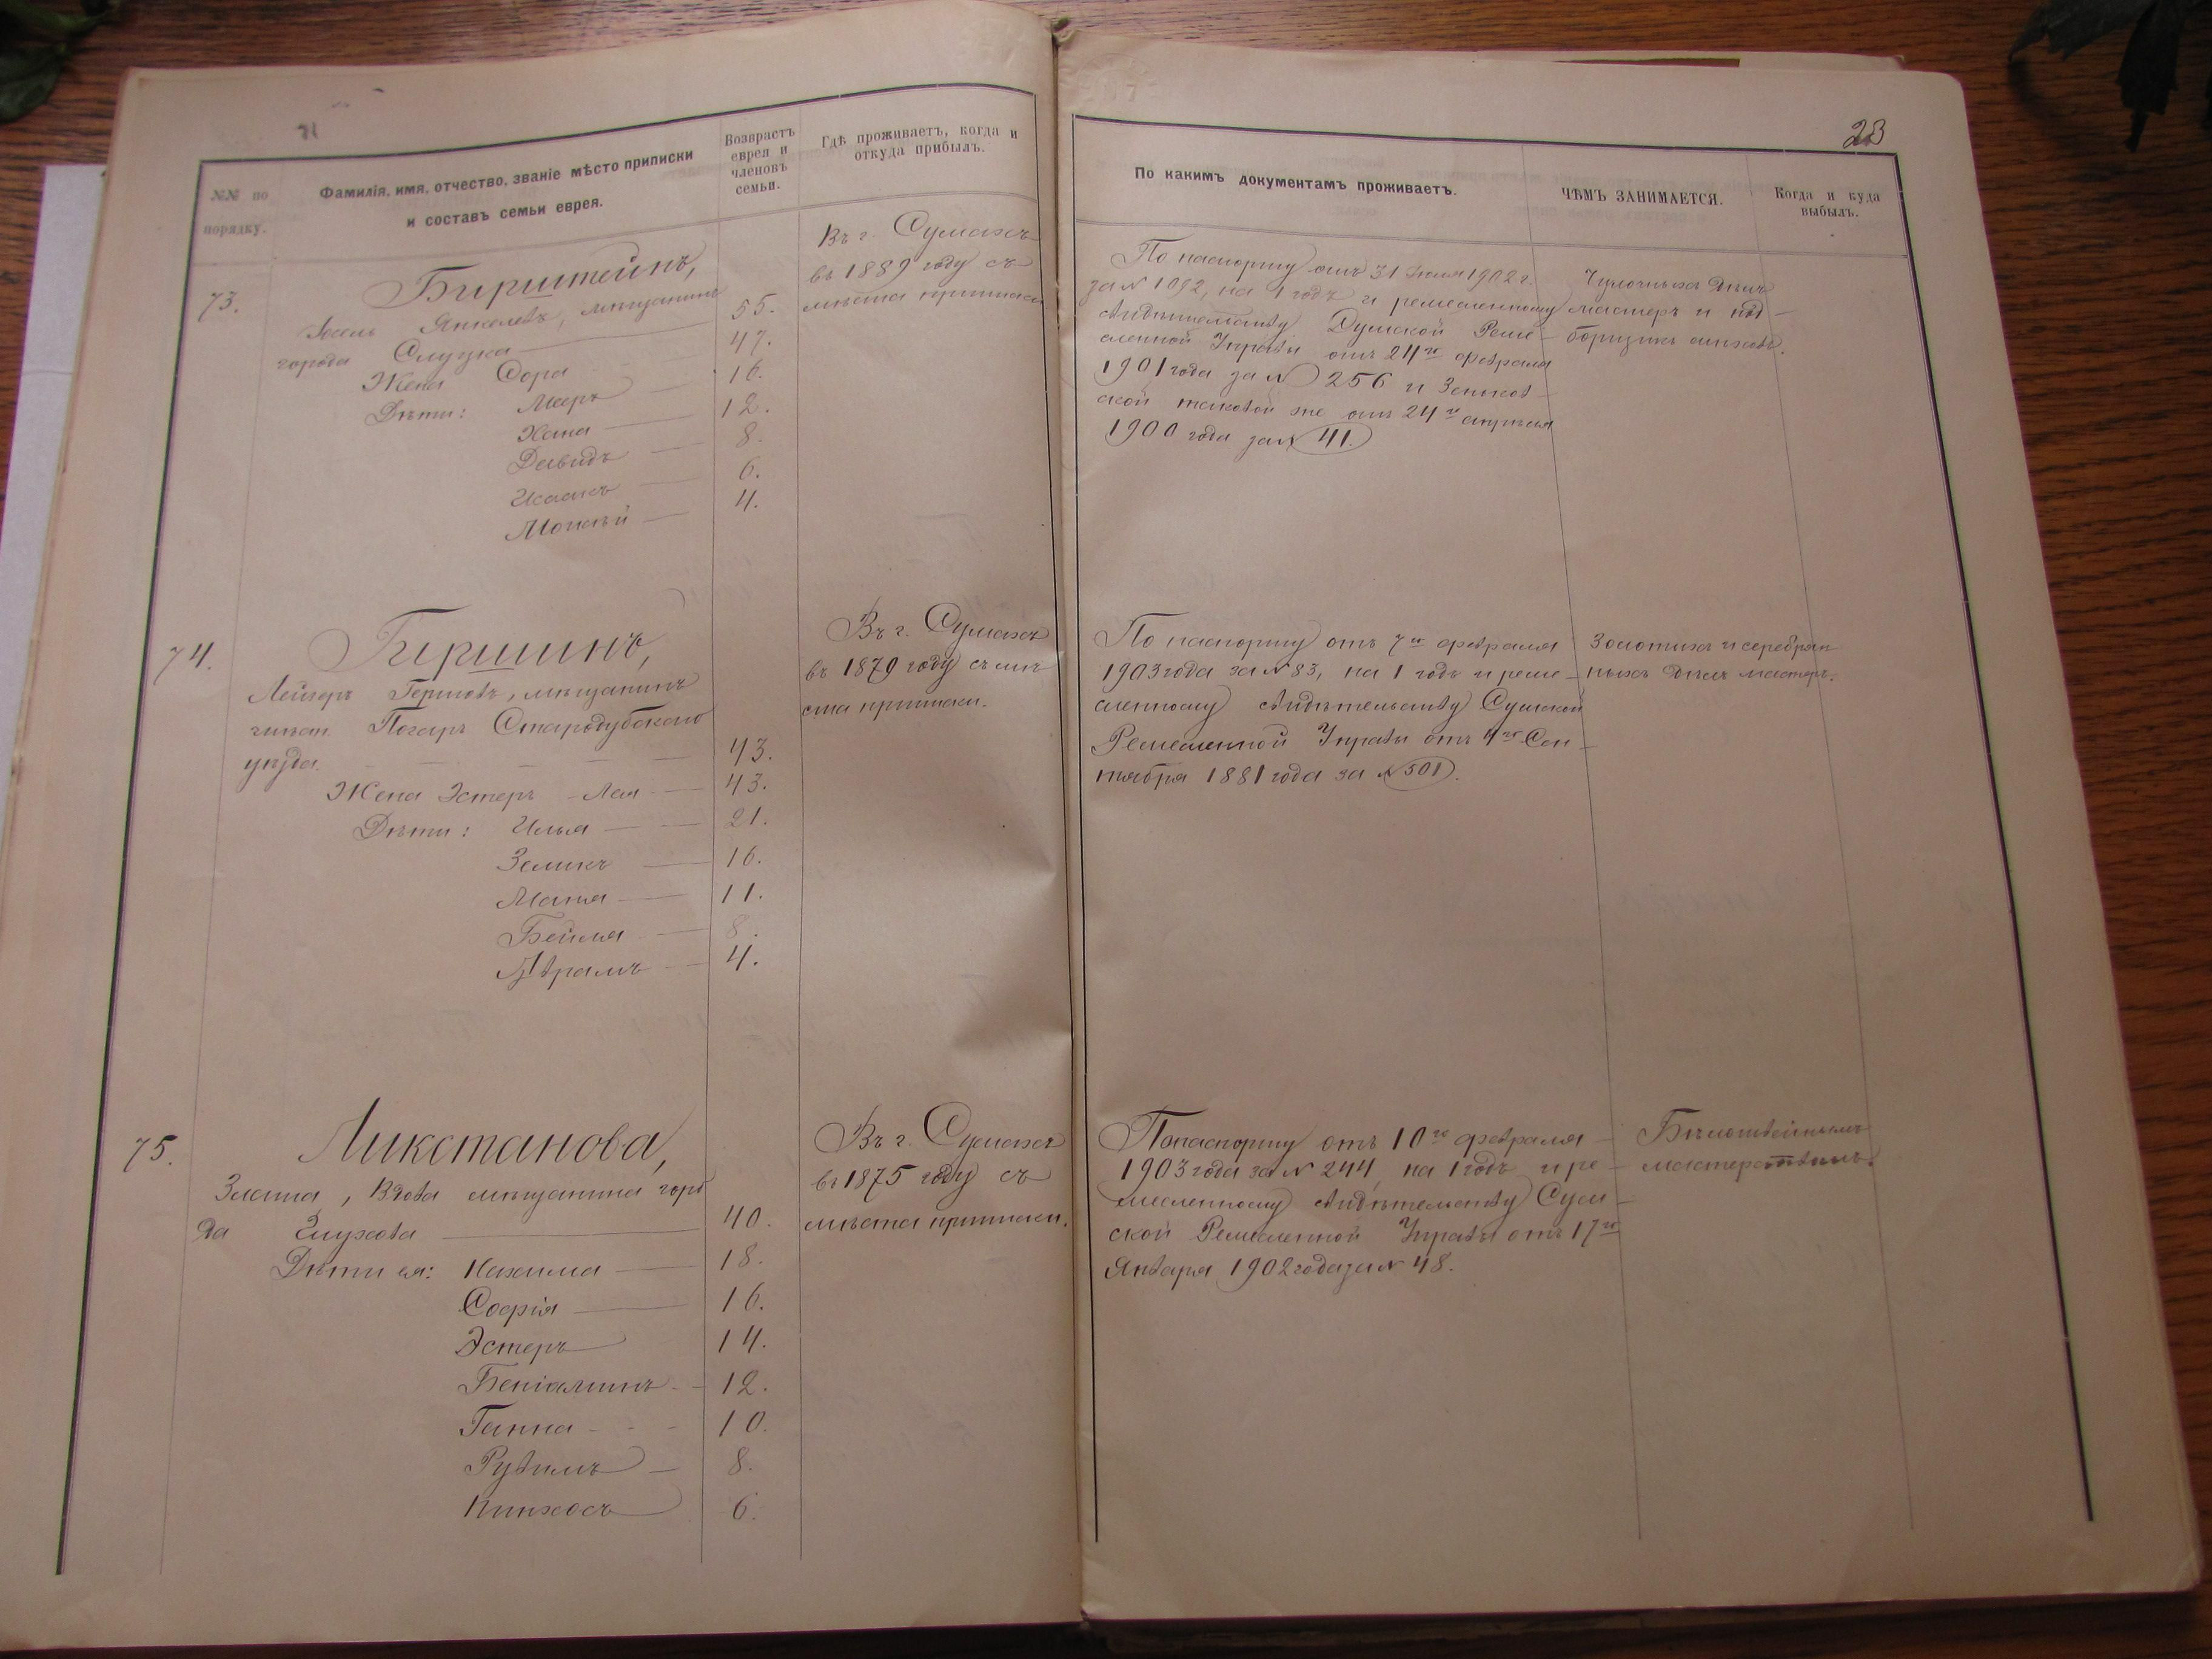 23
№№ по порядку.
Фамилія, имя, отчество, званіе мѣсто приписки
и составъ семьи еврея.
Возврастъ
еврея и
членовъ
семьи.
Гдѣ проживаетъ, когда и
откуда прибылъ.
По какимъ документамъ проживаетъ.
ЧѢМЪ ЗАНИМАЕТСЯ.
Когда и куда
выбылъ.
73.
Бирштейнъ,
Янкелевъ, мѣщанинъ
города Слуцка 55.
Жена Сора 47.
Дѣти: Мееръ 16.
Хана 12.
Давидъ 8.
Исаакъ 6.
Моисей 4.
Въ г. Сумахъ
въ 1889 году съ
мѣста приписки
По паспорту отъ 31 Іюля 1902 г.
за № 1092, на 1 годъ и ремесленному
свидѣтельству Думской Реме-
сленной Управы отъ 24го февраля
1901 года за № 256 и Зеньков-
ской таковой же отъ 24го апрѣля
1900 года за № 41.
Чулочныхъ дѣлъ
мастеръ и под-
борщикъ
74.
Гиршинъ,
Лейзеръ Гершовъ, мѣщанинъ
Погаръ Стародубского
уѣзда. 43.
Жена Эстеръ-Лея 43.
Дѣти: Илья 21.
Зеликъ 16.
Манья 11.
Бейля 8.
Аврамъ 4.
Въ г. Сумахъ
въ 1879 году съ мѣ-
ста приписки.
По паспорту отъ 7го февраля
1903 года за № 83, на 1 годъ и реме-
сленному свидѣтельству Сумской
Ремесленной Управы отъ 4го Сен-
тября 1881 года за № 501.
Золотыхъ и серебрян-
ныхъ дѣлъ мастеръ.
75.
Ликстанова,
Злата, вдова мѣщанина горо
да Глухова 40.
Дѣти ея: Нахима 18.
Софія 16.
Эстеръ 14.
Беніаминъ 12.
Ганна 10.
Рувимъ 8.
Пинхосъ 6.
Въ г. Сумахъ
въ 1875 году съ
мѣста приписки.
По паспорту отъ 10го февраля
1903 года за № 244, на 1 годъ и ре-
месленному свидѣтельству Сум-
ской Ремесленной Управы отъ 17го
Января 1902 года за № 48.
Бѣлошвейнымъ
мастерствомъ.